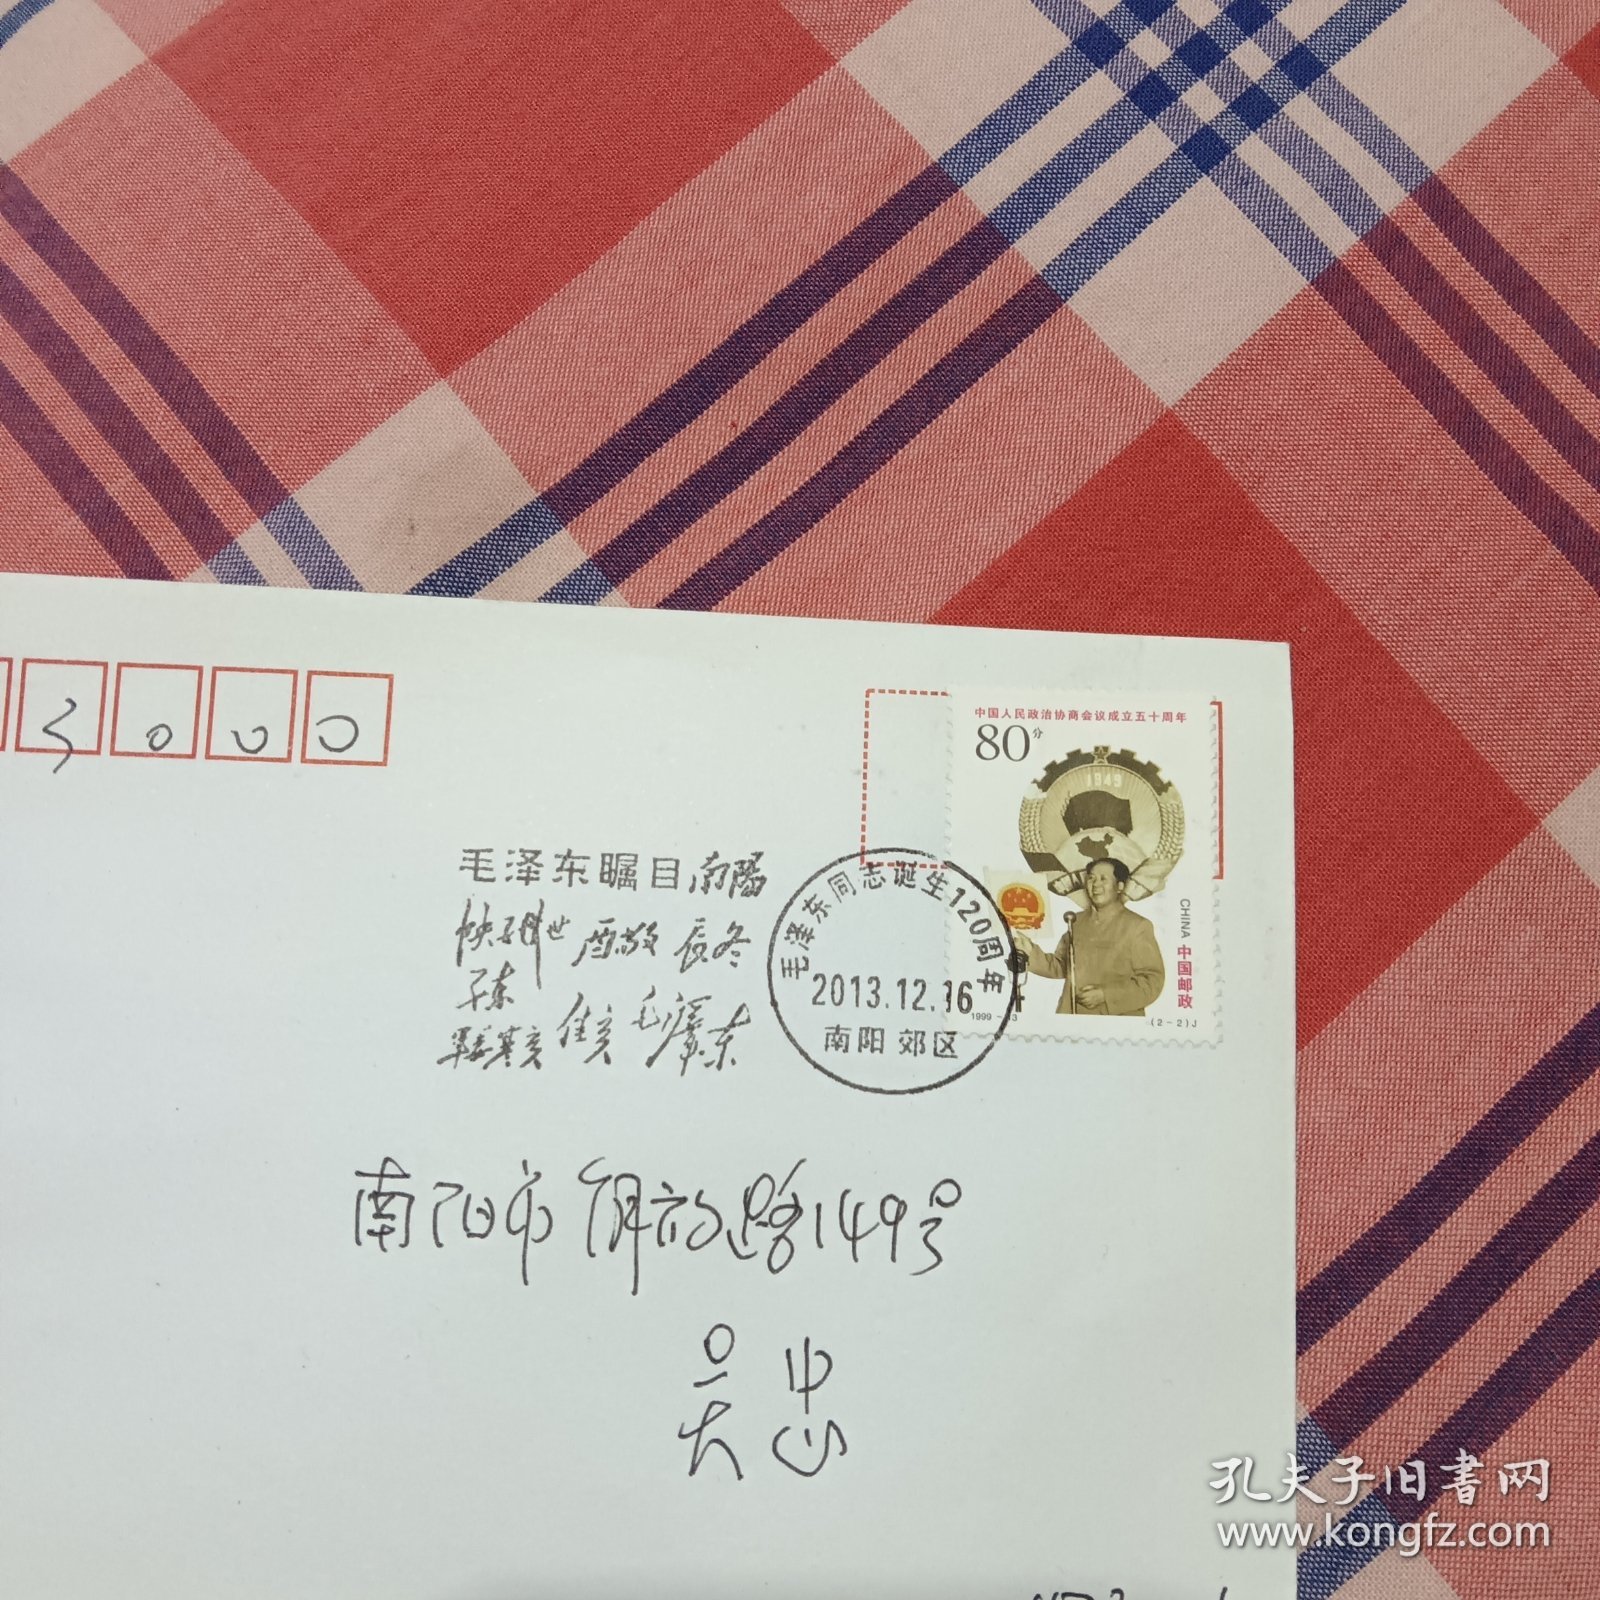 3000
中国人民政治协商会议成立五十周年
80分
1949
CHINA 中国邮政
1999-13
(2-2)J
毛泽东瞩目南陽
毛澤东
毛泽东同志诞生120周年
2013.12.16
南阳 郊区
南阳市解放路149号
吴忠
孔夫子旧书网
www.kongfz.com